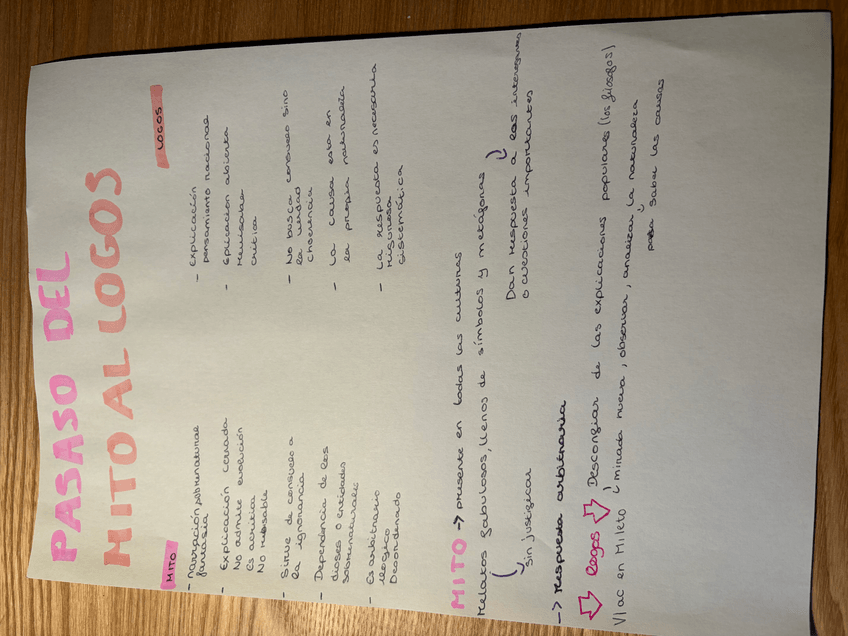 PASASO DEL
MITO AL LOGOS
MITO
- narración sobrenatural
fantasía
- Explicación cerrada
No admite evolución
Es acrítica
No revisable
- Sirve de consuelo a
la ignorancia
- Dependencia de los
dioses o entidades
sobrenaturales
- Es arbitrario
ilogico
Desordenado
LOGOS
- Explicación
pensamiento racional
- Eplicación abierta
Revisable
critica
- No busca consuelo sino
la verdad
choerencia
- La causa esta en
la propia naturaleza
- La respuesta es necesaria
Rigurosa
sistemática
MITO -> presente en todas las culturas
Relatos fabulosos, llenos de símbolos y metáforas
Sin justificar
Dan respuesta a los interogues
o cuestiones importantes
-> Respuesta arbitraria
logos
Desconfiar de las explicaciones populares (los filosofos)
V/ ac en Mileto
mirada nueva, observar, analizar la naturaleza
para saber las causas